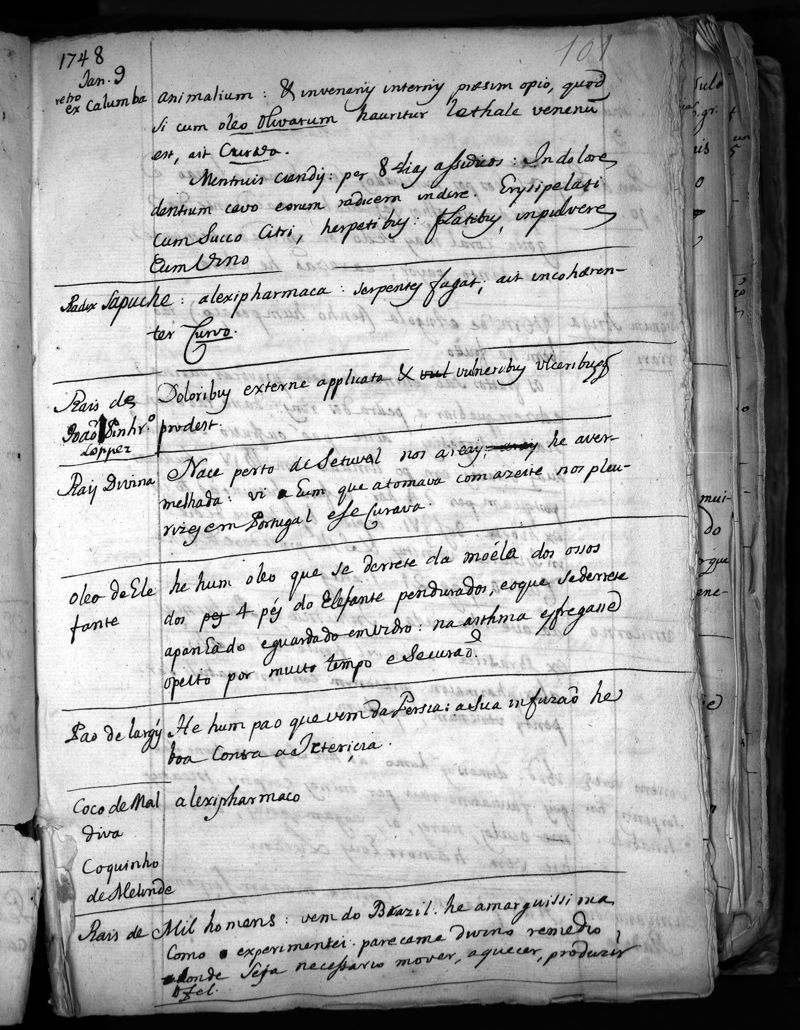 1748
101
Jan. 9
retro
ex Calumba
animalium: & in venenis internis praesim opio, quod
si cum oleo Olivarum hauritur lethale venenū
est, ait Curvo.
Mentruis ciendis: per 8 dias assiduos: In dolore
dentium cavo eorum radicem indere. Erysipelati
cum Succo Citri, herpetibus: flatibus, in pulvere
Cum Vino
Radix Sapuche: alexipharmaca: serpentes fugat; ait incohæren-
ter Curvo.
Rais de
João Pinhr.o
LopPez
Doloribus externe applicata & vul vulneribus Ulceribusq
prodest.
Raiz Divina
Nace perto de Setuval nos areais, he aver-
melhada: vi Eum que a tomava com azeite nos pleu-
rizes em Portugal e se Curava.
Oleo de Ele
fante
he hum óleo que se derrete da moéla dos ossos
dos pes 4 pés do Elefante pendurados, e o que se derrete
apanhado e guardado em vidro: na asthma esfregando
o peito por muito tempo e se curaō.
Pao de largis
He hum pao que vem da Persia: a sua infuzaō he
boa Contra a Ictericia.
Coco de Mal
diva
alexipharmaco
Coquinho
de Melinde
Rais de Mil homens: vem do Brazil. he amarguissima
Como experimentei. pareceme divino remedio
donde seja necessario mover, aquecer, produzir
fel.